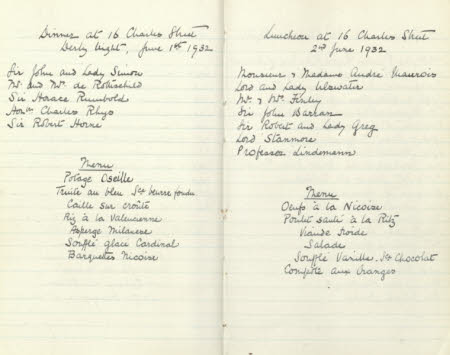 Dinner at 16 Charles Street
Derby Night, June 1st 1932
Sir John and Lady Simon
Mr. and Mrs. de Rothschild
Sir Horace Rumbold
Honble Charles Rhys
Sir Robert Horne
Menu
Potage Oseille
Truite au bleu Sce beurre fondu
Caille sur croûte
Riz à la Valencienne
Asperge Milanese
Soufflé glacé Cardinal
Barquettes Nicoise
Luncheon at 16 Charles Street
2nd June 1932
Monsieur & Madame André Maurois
Lord and Lady Ullswater
Mr. & Mrs. Finley
Sir John Barran
Sir Robert and Lady Greg
Lord Stanmore
Professor Lindemann
Menu
Oeufs à la Nicoise
Poulet sauté à la Ritz
Viande froide
Salade
Soufflé Vanille. Sce Chocolat
Compote aux Oranges